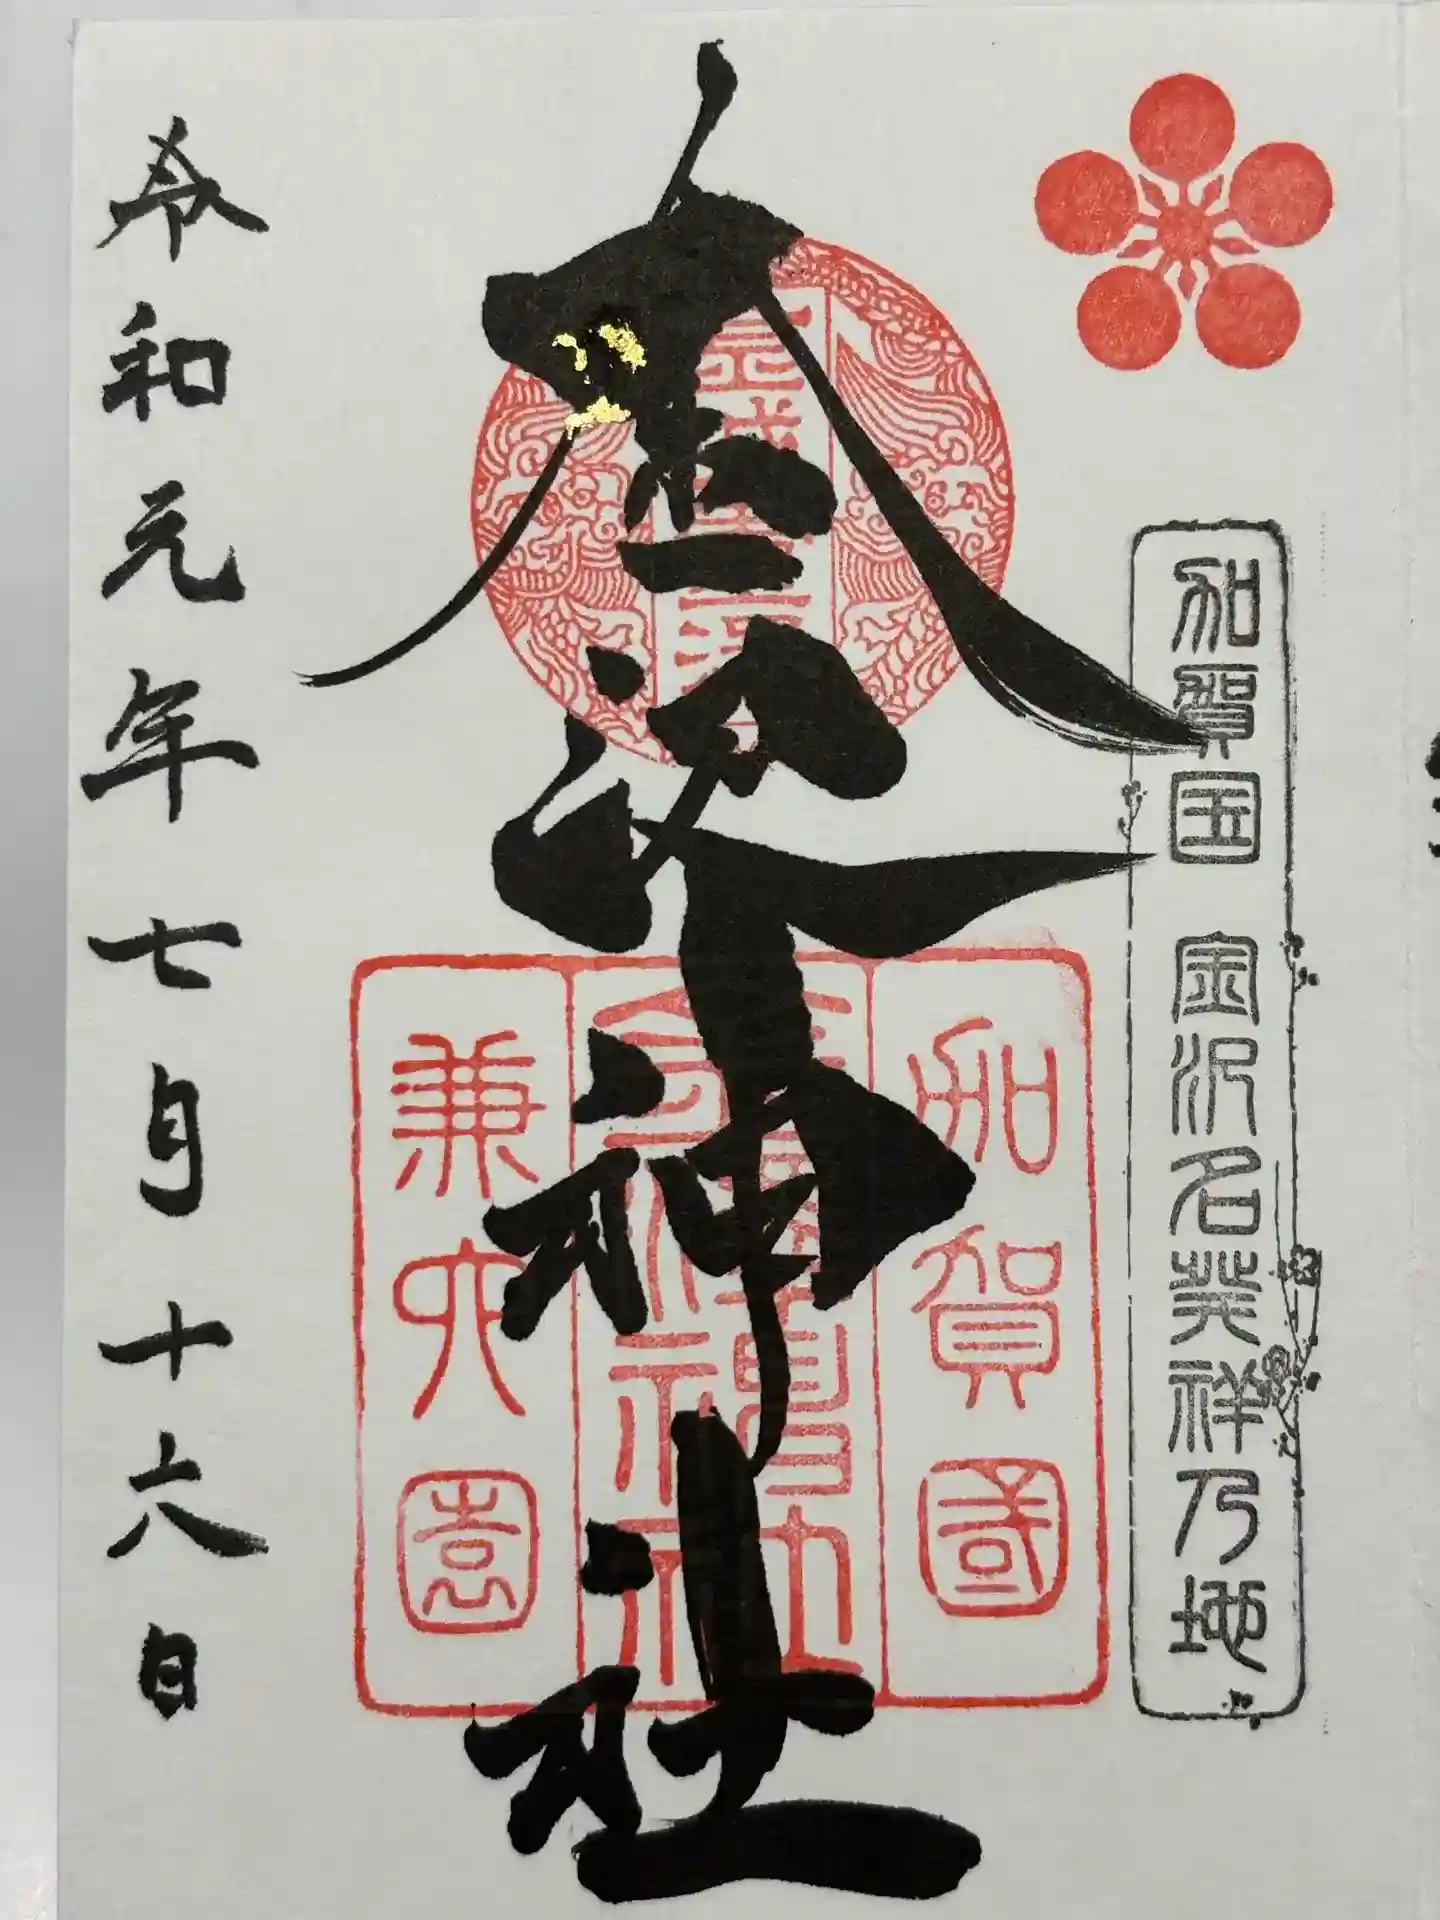 加賀国 金沢名発祥乃地
加賀國
金沢神社
兼六園
令和元年七月十六日